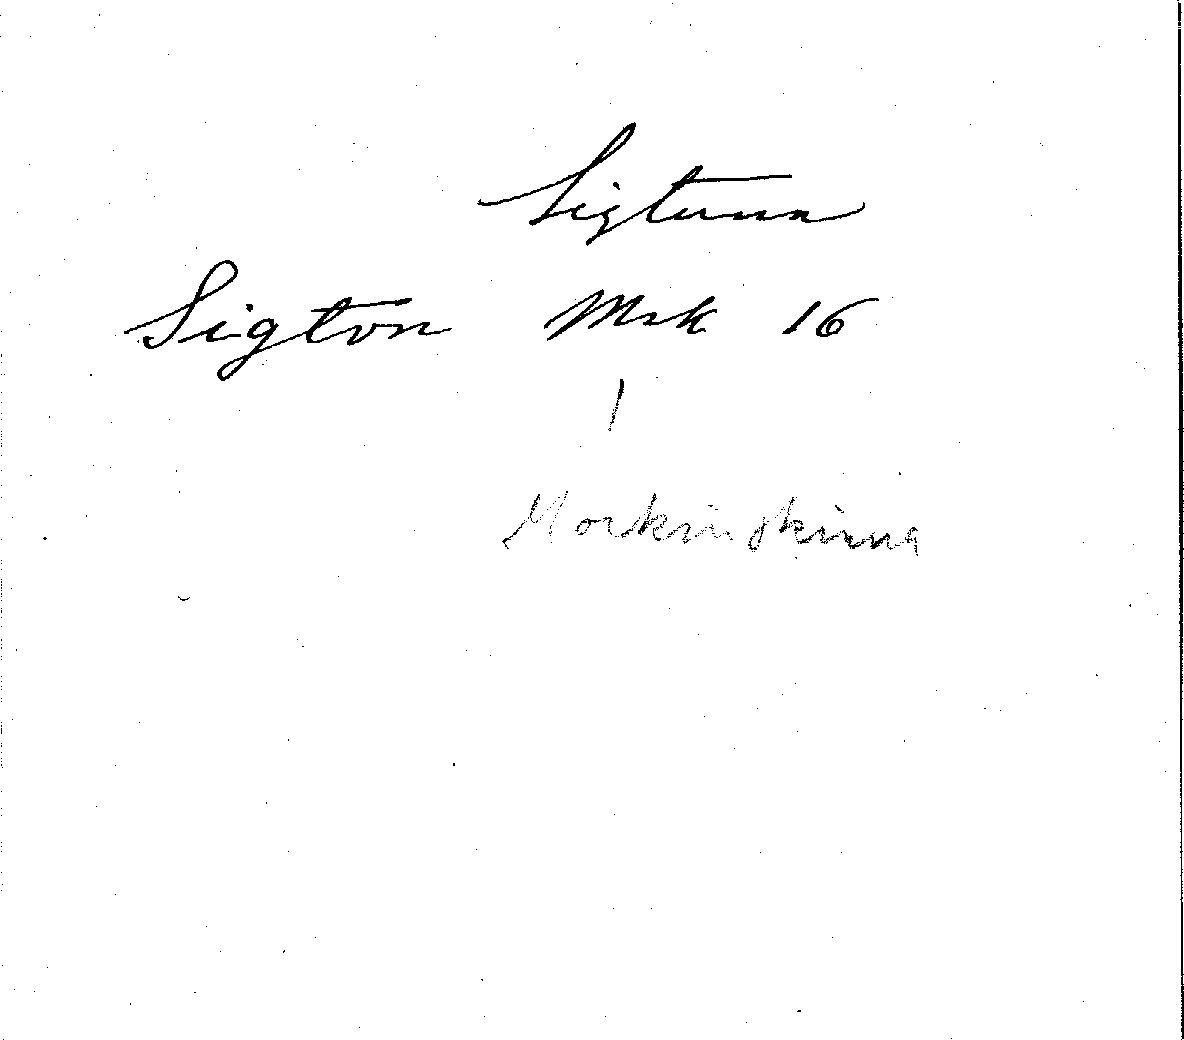 Sigtuna
Sigton Msk 16
Morkinskinna